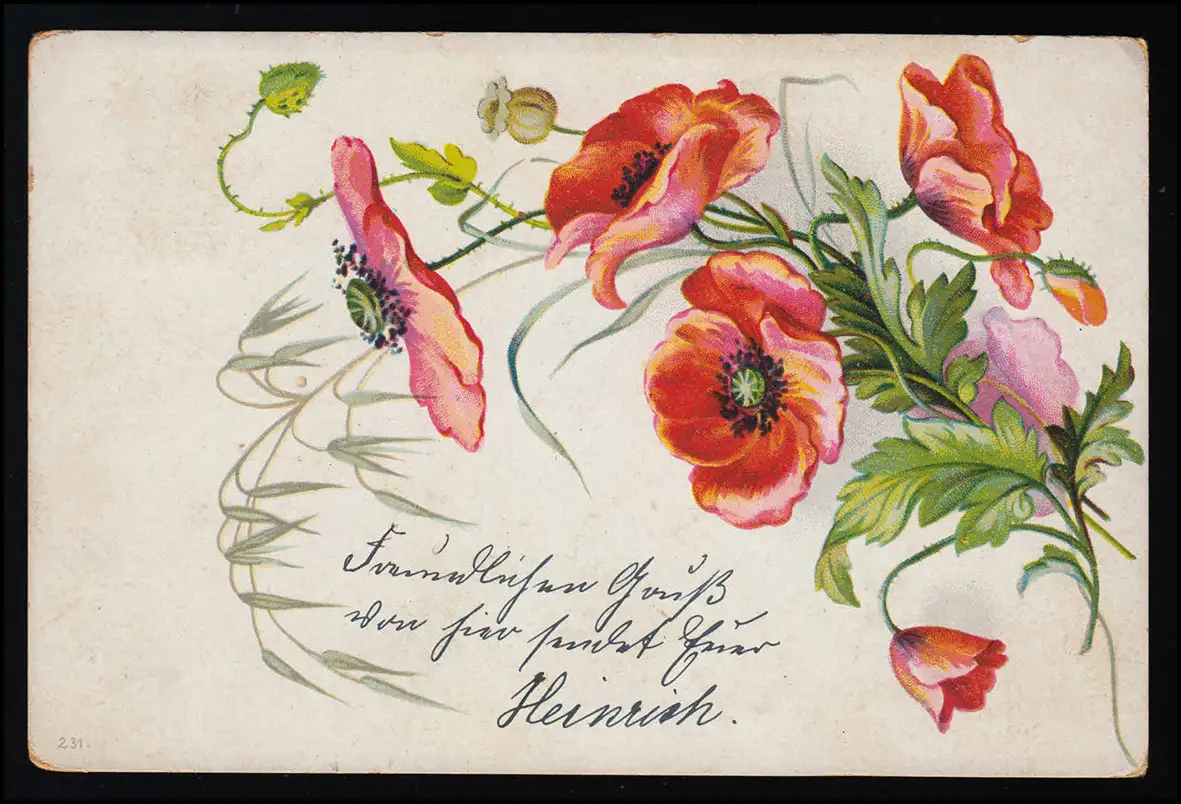 Freundlichen Gruß
von hier sendet Euer
Heinrich.
231.